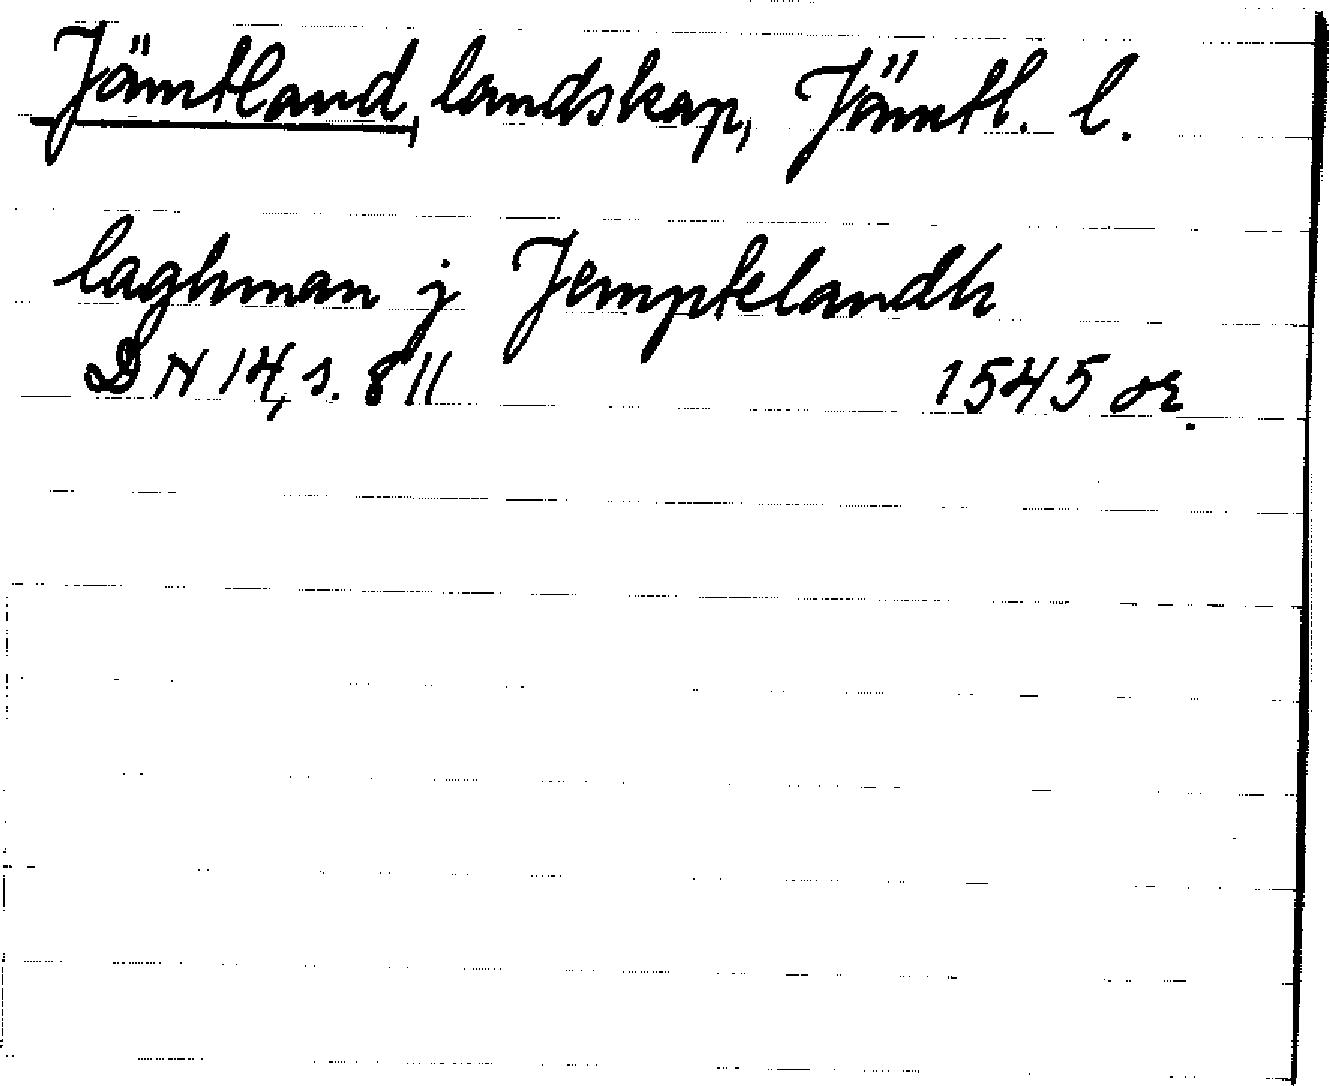 Jämtland landskap, Jämtl. l.
laghman j Jemptelandh
DN 14, s. 811 1545 or.